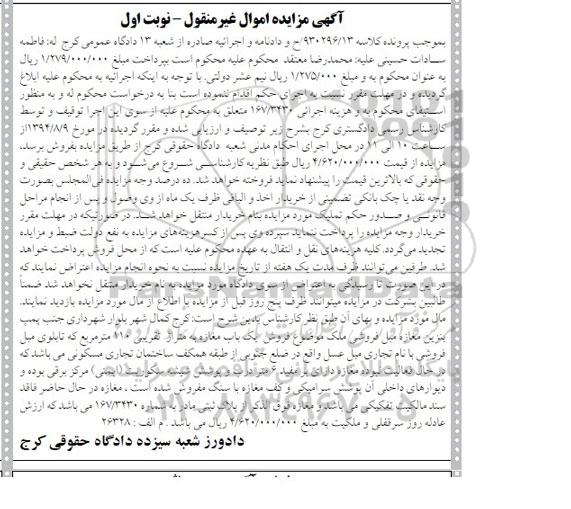 آگهی مزایده اموال غیرمنقول - نوبت اول
بموجب پرونده کلاسه ۹۳۰۲۹۶/۱۳/ح و دادنامه و اجرائیه صادره از شعبه ۱۳ دادگاه عمومی کرج له: فاطمه
سادات حسینی علیه: محمدرضا معتقد محکوم علیه محکوم است بپرداخت مبلغ ۱/۲۷۹/۰۰۰/۰۰۰ ریال
به عنوان محکوم به و مبلغ ۱/۲۷۵/۰۰۰ ریال نیم عشر دولتی. با توجه به اینکه اجرائیه به محکوم علیه ابلاغ
گردیده و در مهلت مقرر نسبت به اجرای حکم اقدام ننموده است بنا به درخواست محکوم له و به منظور
استیفای محکوم به و هزینه اجرائی ۱۶۷/۳۴۳۰ متعلق به محکوم علیه از سوی این اجرا توقیف و توسط
کارشناس رسمی دادگستری کرج بشرح زیر توصیف و ارزیابی شده و مقرر گردیده در مورخ ۱۳۹۴/۸/۹از
ساعت ۱۰ الی ۱۱ در محل اجرای احکام مدنی شعبه دادگاه حقوقی کرج از طریق مزایده بفروش برسد،
مزایده از قیمت ۴/۶۲۰/۰۰۰/۰۰۰ ریال طبق نظریه کارشناسی شروع می‌شود و به هر شخص حقیقی و
حقوقی که بالاترین قیمت را پیشنهاد نماید فروخته خواهد شد. ده درصد وجه مزایده فی‌المجلس بصورت
وجه نقد یا چک بانکی تضمینی از خریدار اخذ و الباقی ظرف یک ماه از وی وصول و پس از انجام مراحل
قانونی و صدور حکم تملیک مورد مزایده بنام خریدار منتقل خواهد شد. در صورتیکه در مهلت مقرر
خریدار وجه مزایده را پرداخت ننماید سپرده وی پس از کسر هزینه‌های مزایده به نفع دولت ضبط و مزایده
تجدید می‌گردد. کلیه هزینه‌های نقل و انتقال به عهده محکوم علیه است که از محل فروش پرداخت خواهد
شد. طرفین می‌توانند ظرف مدت یک هفته از تاریخ مزایده نسبت به نحوه انجام مزایده اعتراض نمایند که
در این صورت تا رسیدگی به اعتراض در دادگاه مورد مزایده به نام خریدار منتقل نخواهد شد ضمناً
طالبین بشرکت در مزایده میتوانند ظرف پنج روز قبل از مزایده با اطلاع از مال مورد مزایده بازدید نمایند.
مال مورد مزایده و بهای آن طبق نظر کارشناس بدین شرح است: کرج کمال شهر بلوار شهرداری جنب پمپ
بنزین مغازه مبل فروشی ملک موضوع فروش یک باب مغازه به متراژ تقریبی ۱۱۰ مترمربع که تابلوی مبل
فروشی با نام تجاری مبل عسل واقع در ضلع جنوبی از طبقه همکف ساختمان تجاری مسکونی می باشد که
در حال فعالیت بوده مغازه دارای بر مفید ۶ متر و ارتفاع و پوشش شیشه سکوریت (ایمنی) مرکز برقی بوده و
دیوارهای داخلی آن پوشش سرامیکی و کف مغازه با سنگ مفروش شده است. مغازه در حال حاضر فاقد
سند مالکیت تفکیکی می باشد و مغازه فوق الذکر از پلاک ثبتی مادر به شماره ۱۶۷/۳۴۳۰ می باشد که ارزش
عادله روز سرقفلی و ملکیت به مبلغ ۴/۶۲۰/۰۰۰/۰۰۰ ریال می باشد . م الف : ۲۶۳۲۸
دادورز شعبه سیزده دادگاه حقوقی کرج